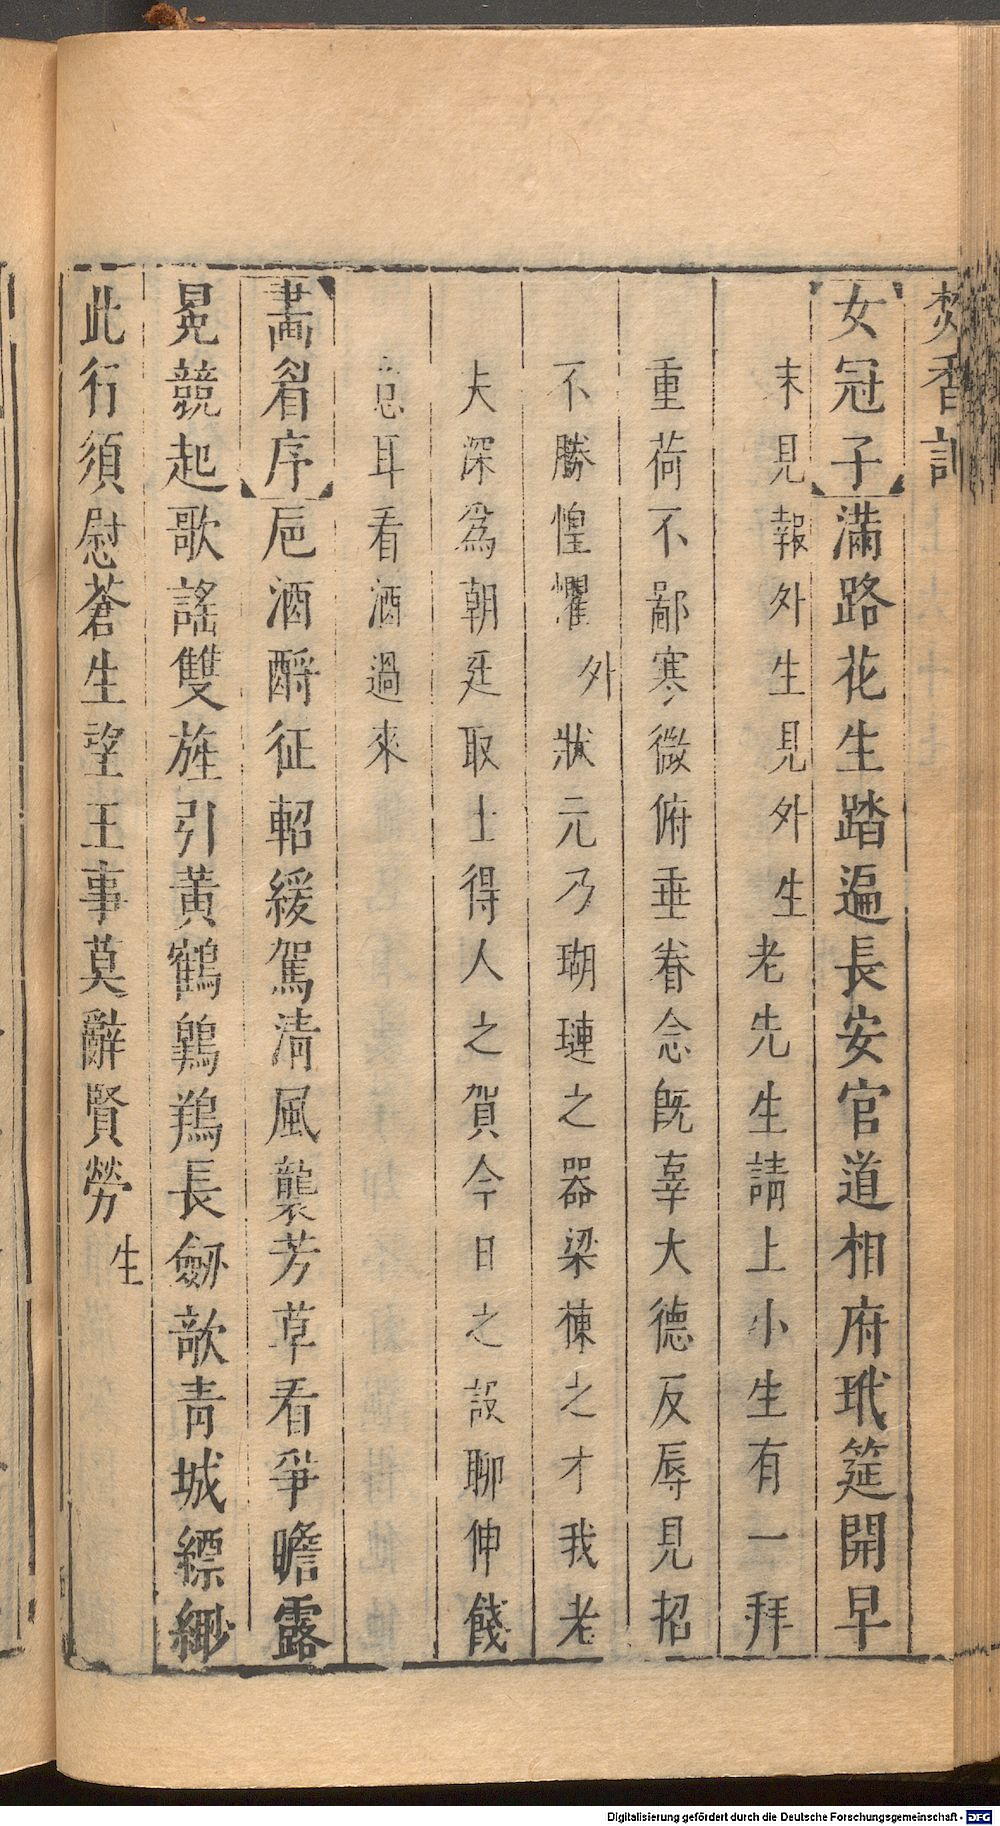 焚香記
女冠子滿路花生踏遍長安官道相府玳筵開早
末見報外生見外生老先生請上小生有一拜
重荷不鄙寒微俯垂眷念旣辜大德反辱見招
不勝惶懼外狀元乃瑚璉之器梁棟之才我老
夫深爲朝廷取士得人之賀今日之設聊伸餞
意耳看酒過來
畫眉序巵酒酹征軺緩駕清風襲芳草看爭瞻露
冕競起歌謠雙旌引黃鶴鵾鷄長劒歃青城縹緲
此行須慰蒼生望王事莫辭賢勞生
Digitalisierung gefördert durch die Deutsche Forschungsgemeinschaft - DFG